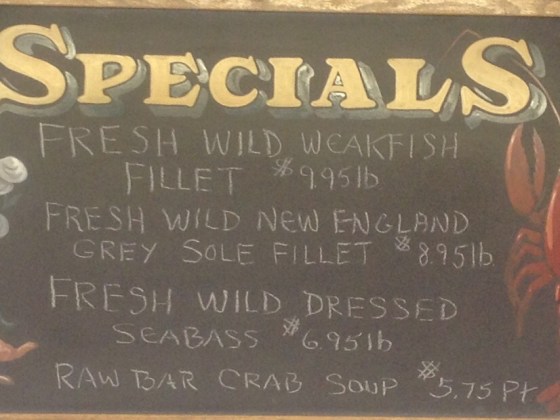 SPECIALS
FRESH WILD WEAKFISH
FILLET $9.95lb
FRESH WILD NEW ENGLAND
GREY SOLE FILLET $8.95lb
FRESH WILD DRESSED
SEABASS $6.95lb
RAW BAR CRAB SOUP $5.75 Pt